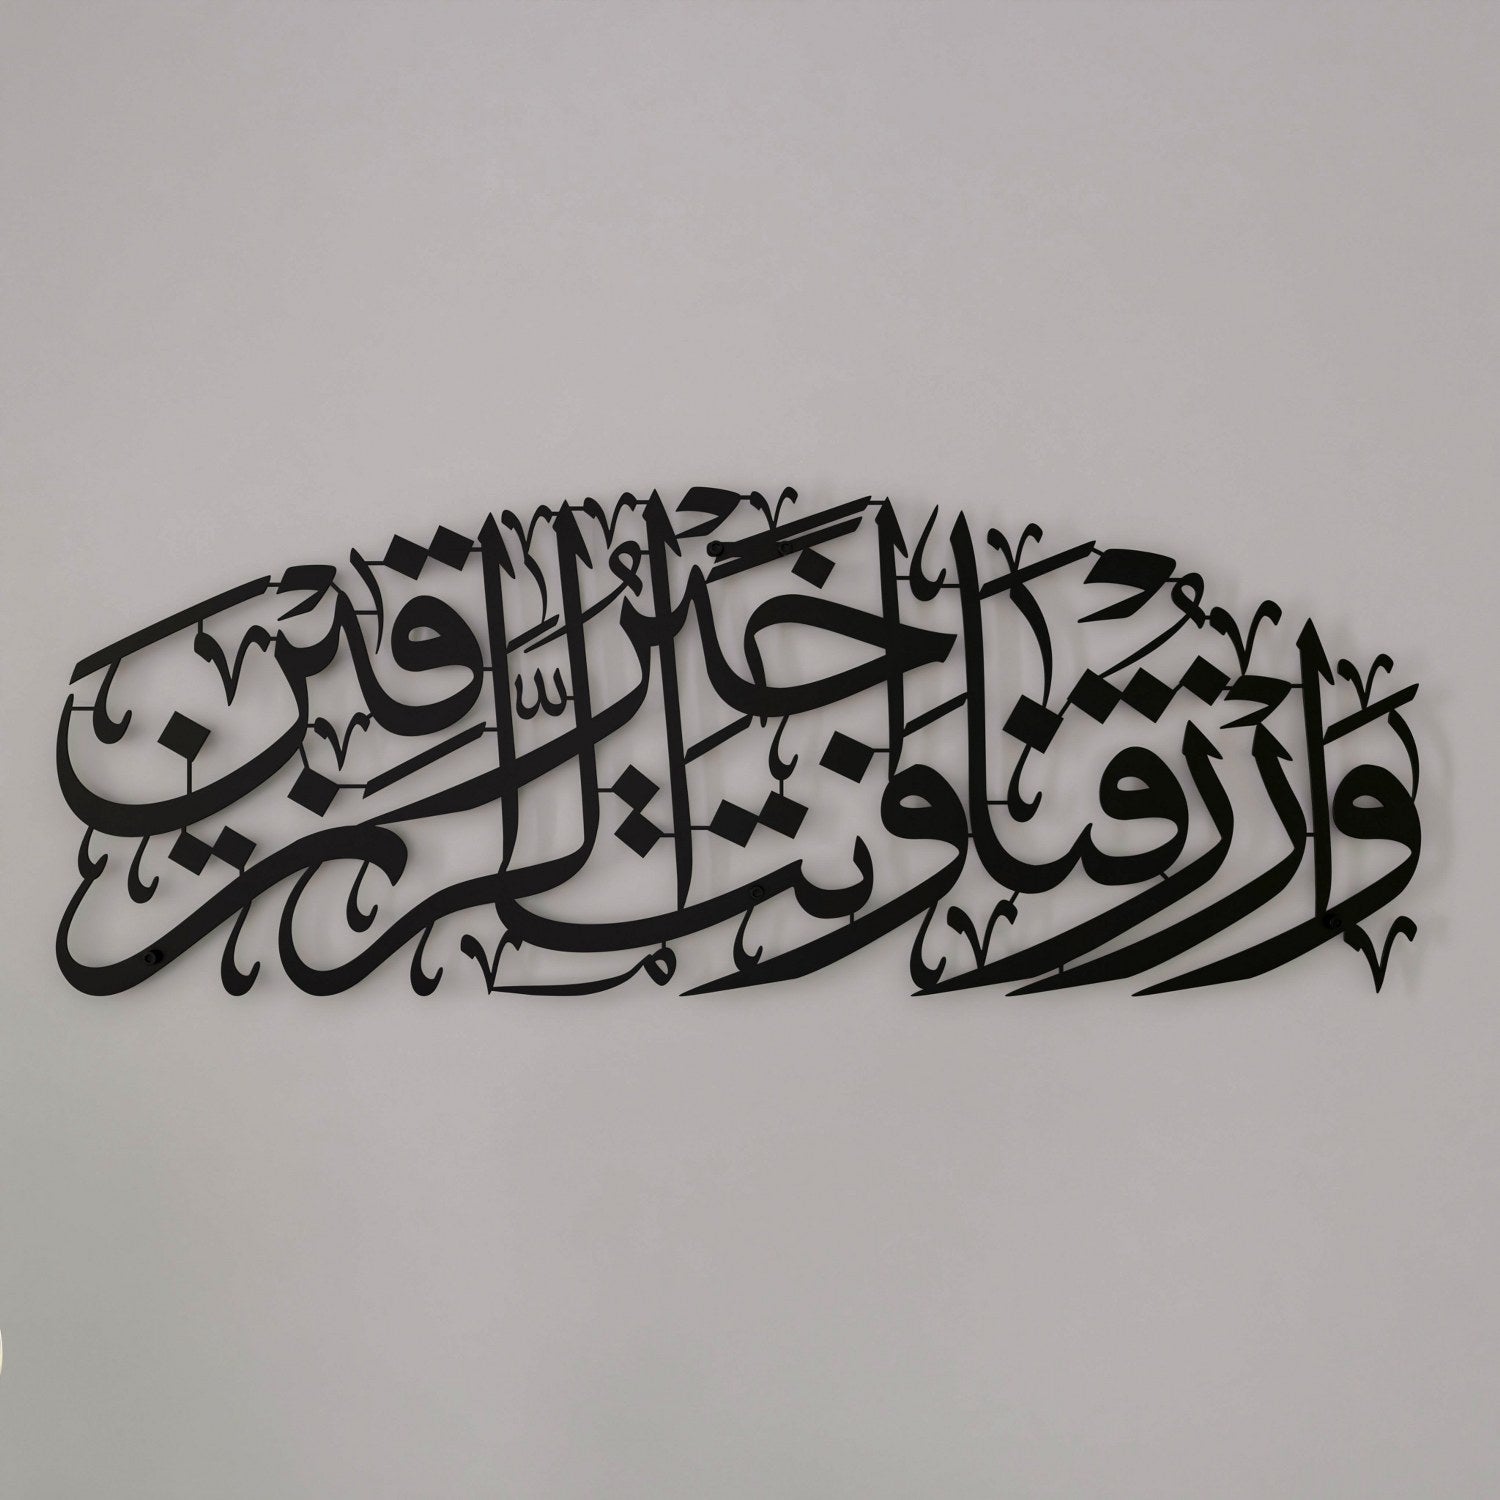 وَارْزُقْنَا وَأَنْتَ خَيْرُ الرَّازِقِينَ